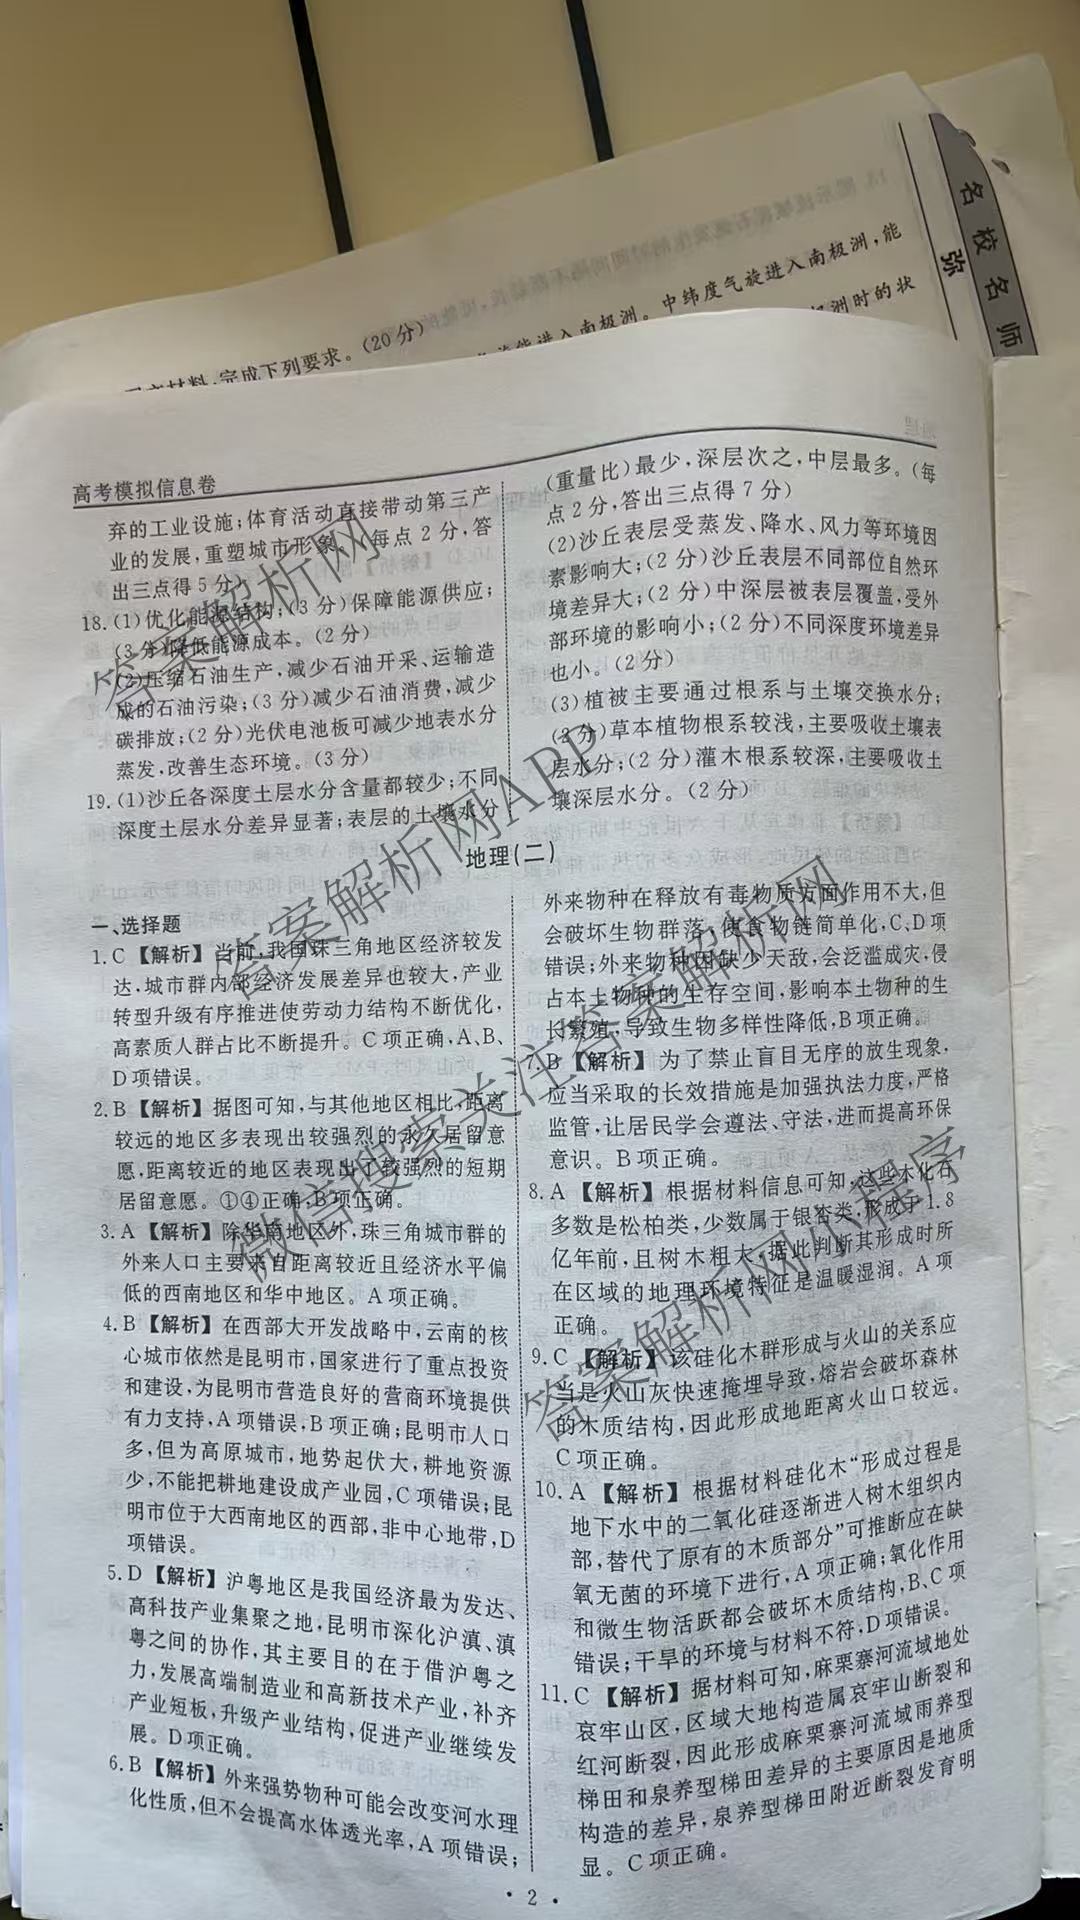 名校名师
弥
中纬度气旋进入南极洲,能
能进入南极洲。
洲时的状
完成下列要求。(20分)
高考模拟信息卷
弃的工业设施;体育活动直接带动第三产
业的发展,重塑城市形象。(每点2分,答
出三点得5分)
18.(1)优化能源结构;(3分)保障能源供应;
(3分)降低能源成本。(2分)
(2)压缩石油生产,减少石油开采、运输造
成的石油污染;(3分)减少石油消费,减少
碳排放;(2分)光伏电池板可减少地表水分
蒸发,改善生态环境。(3分)
19.(1)沙丘各深度土层水分含量都较少;不同
深度土层水分差异显著;表层的土壤水分
(重量比)最少,深层次之,中层最多。(每
点2分,答出三点得7分)
(2)沙丘表层受蒸发、降水、风力等环境因
素影响大;(2分)沙丘表层不同部位自然环
境差异大;(2分)中深层被表层覆盖,受外
部环境的影响小;(2分)不同深度环境差异
也小。(2分)
(3)植被主要通过根系与土壤交换水分;
(2分)草本植物根系较浅,主要吸收土壤表
层水分;(2分)灌木根系较深,主要吸收土
壤深层水分。(2分)
地理(二)
一、选择题
1.C【解析】当前,我国珠三角地区经济较发
达,城市群内部经济发展差异也较大,产业
转型升级有序推进使劳动力结构不断优化,
高素质人群占比不断提升。C项正确,A、B、
D项错误。
2.B【解析】据图可知,与其他地区相比,距离
较远的地区多表现出较强烈的永久居留意
愿,距离较近的地区表现出了较强烈的短期
居留意愿。①④正确,B项正确。
3.A【解析】除华南地区外,珠三角城市群的
外来人口主要来自距离较近且经济水平偏
低的西南地区和华中地区。A项正确。
4.B【解析】在西部大开发战略中,云南的核
心城市依然是昆明市,国家进行了重点投资
和建设,为昆明市营造良好的营商环境提供
有力支持,A项错误,B项正确;昆明市人口
多,但为高原城市,地势起伏大,耕地资源
少,不能把耕地建设成产业园,C项错误;昆
明市位于大西南地区的西部,非中心地带,D
项错误。
5.D【解析】沪粤地区是我国经济最为发达、
高科技产业集聚之地,昆明市深化沪滇、滇
粤之间的协作,其主要目的在于借沪粤之
力,发展高端制造业和高新技术产业,补齐
产业短板,升级产业结构,促进产业继续发
展。D项正确。
6.B【解析】外来强势物种可能会改变河水理
化性质,但不会提高水体透光率,A项错误;
外来物种在释放有毒物质方面作用不大,但
会破坏生物群落,使食物链简单化,C、D项
错误;外来物种因缺少天敌,会泛滥成灾,侵
占本土物种的生存空间,影响本土物种的生
长繁殖,导致生物多样性降低,B项正确。
7.B【解析】为了禁止盲目无序的放生现象,
应当采取的长效措施是加强执法力度,严格
监管,让居民学会遵法、守法,进而提高环保
意识。B项正确。
8.A【解析】根据材料信息可知,这些木化石
多数是松柏类,少数属于银杏类,形成于1.8
亿年前,且树木粗大,据此判断其形成时所
在区域的地理环境特征是温暖湿润。A项
正确。
9.C【解析】该硅化木群形成与火山的关系应
当是火山灰快速掩埋导致,熔岩会破坏森林
的木质结构,因此形成地距离火山口较远。
C项正确。
10.A【解析】根据材料硅化木“形成过程是
地下水中的二氧化硅逐渐进人树木组织内
部,替代了原有的木质部分”可推断应在缺
氧无菌的环境下进行,A项正确;氧化作用
和微生物活跃都会破坏木质结构,B、C项
错误;干旱的环境与材料不符,D项错误。
11.C【解析】据材料可知,麻栗寨河流域地处
哀牢山区,区域大地构造属哀牢山断裂和
红河断裂,因此形成麻栗寨河流域雨养型
梯田和泉养型梯田差异的主要原因是地质
构造的差异,泉养型梯田附近断裂发育明
显。C项正确。
·2·
答案解析网
答案解析网APP
微信搜索关注答案解析网
答案解析网小程序